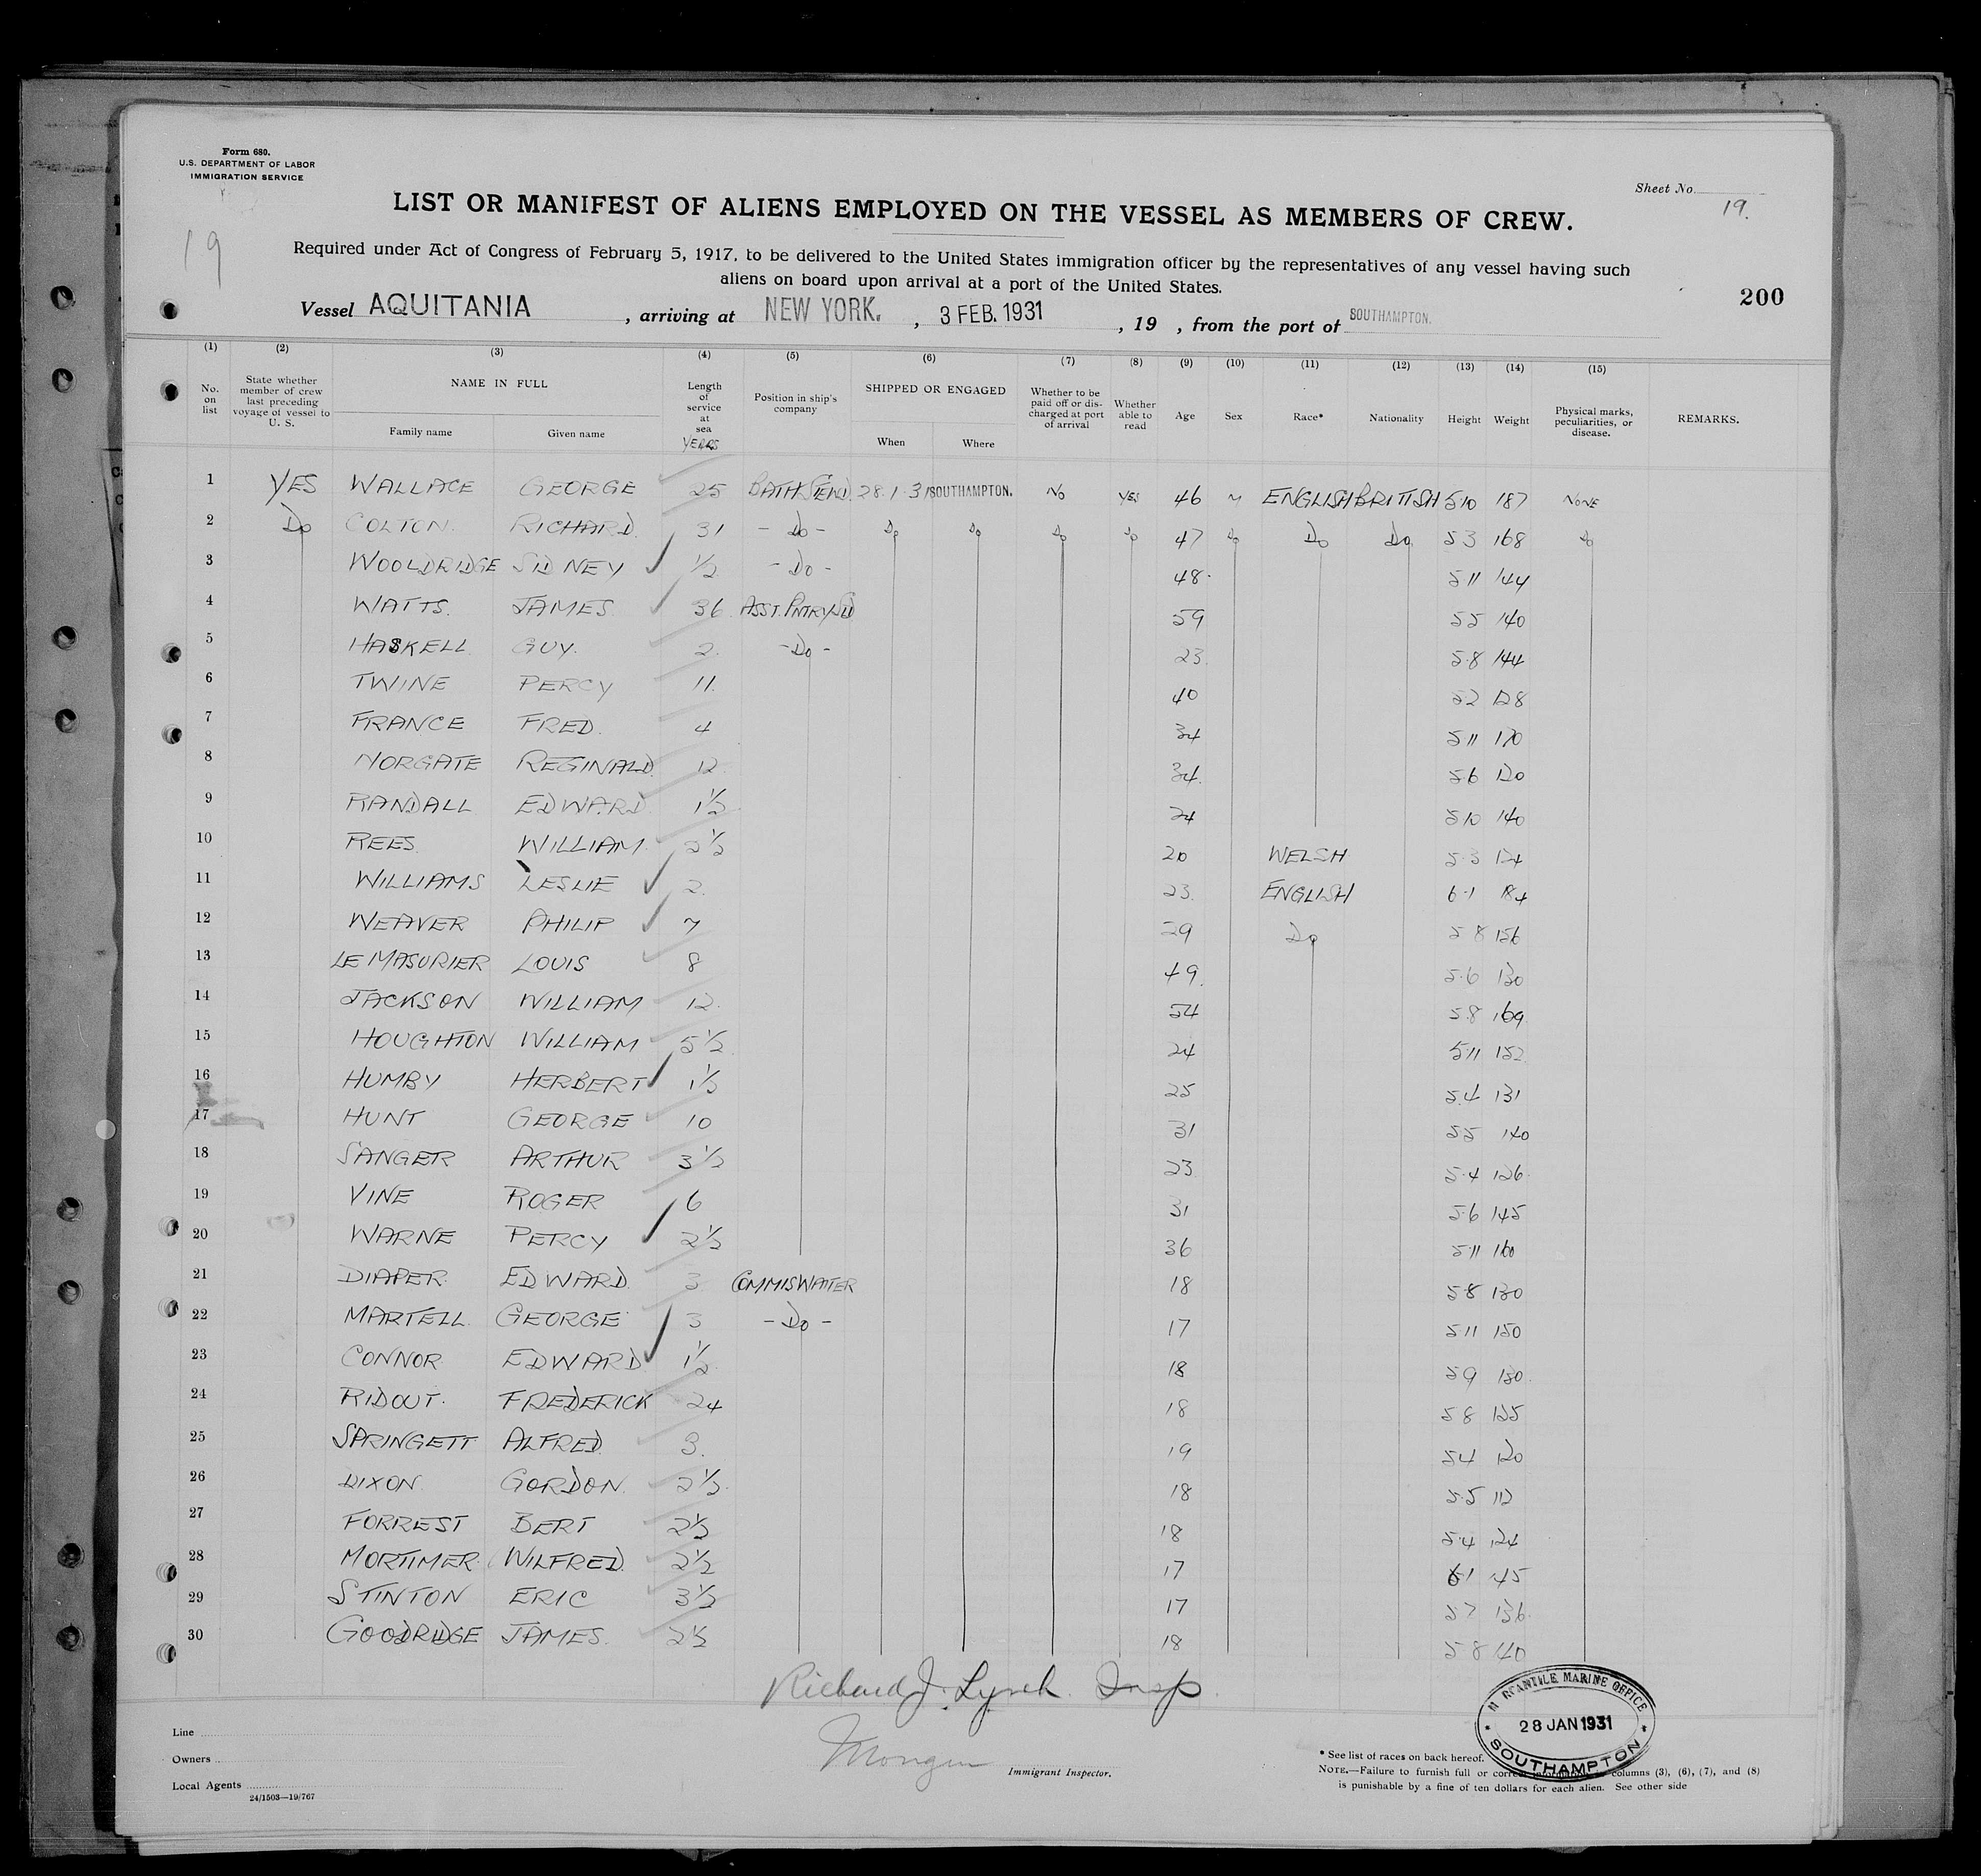 Form 680.
U.S. DEPARTMENT OF LABOR
IMMIGRATION SERVICE
Sheet No. 19.
LIST OR MANIFEST OF ALIENS EMPLOYED ON THE VESSEL AS MEMBERS OF CREW.
19
Required under Act of Congress of February 5, 1917, to be delivered to the United States immigration officer by the representatives of any vessel having such
aliens on board upon arrival at a port of the United States.
200
Vessel AQUITANIA, arriving at NEW YORK., 3 FEB. 1931, 19 , from the port of SOUTHAMPTON.
(1) (2) (3) (4) (5) (6) (7) (8) (9) (10) (11) (12) (13) (14) (15)
No. on list State whether member of crew last preceding voyage of vessel to U. S. NAME IN FULL Family name Given name Length of service at sea YEARS Position in ship's company SHIPPED OR ENGAGED When Where Whether to be paid off or discharged at port of arrival Whether able to read Age Sex Race* Nationality Height Weight Physical marks, peculiarities, or disease. REMARKS.
1 YES WALLACE GEORGE 25 BATH STEWD. 28.1.31 SOUTHAMPTON. NO YES 46 M ENGLISH BRITISH 5.10 187 NONE
2 Do COLTON. RICHARD. 31 - Do - Do Do Do Do 47 Do Do Do 5 3 168 Do
3 WOOLDRIDGE SIDNEY 1/2 - Do - 48. 5 11 144
4 WATTS. JAMES. 36 ASST. PNTRY SD 59 5 5 140
5 HASKELL GUY. 2. - Do - 23. 5.8 144
6 TWINE PERCY 11. 40 5 2 128
7 FRANCE FRED. 4 34 5 11 170
8 NORGATE REGINALD. 12 34. 5 6 120
9 RANDALL EDWARD 1 1/2 24 5 10 140
10 REES. WILLIAM. 2 1/2 20 WELSH 5.3 124
11 WILLIAMS LESLIE 2. 23. ENGLISH 6.1 184
12 WEAVER PHILIP 7 29 Do 5 8 156
13 LE MASURIER LOUIS 8 49. 5.6 130
14 JACKSON WILLIAM 12. 54 5.8 169
15 HOUGHTON WILLIAM 5 1/2 24 5.11 152
16 HUMBY HERBERT 1 1/2 25 5.4 131
17 HUNT GEORGE 10 31 5 5 140
18 SANGER ARTHUR 3 1/2 23 5.4 126
19 VINE ROGER 6 31 5.6 145
20 WARNE PERCY 2 1/2 36 5.11 160
21 DIAPER EDWARD 3 COMMIS WAITER 18 5.8 130
22 MARTELL. GEORGE 3 - Do - 17 5 11 150
23 CONNOR EDWARD 1 1/2 18 5 9 130.
24 RIDOUT. FREDERICK 24 18 5 8 125
25 SPRINGETT ALFRED. 3. 19 5 4 120
26 DIXON GORDON. 2 1/2 18 5.5 112
27 FORREST BERT 2 1/2 18 5.4 124
28 MORTIMER WILFRED. 2 1/2 17 6 1 145
29 STINTON ERIC 3 1/2 17 5 7 136
30 GOODRIDGE JAMES. 2 1/2 18 5 8 140
Richard J. Lynch Insp.
MERCANTILE MARINE OFFICE
28 JAN 1931
SOUTHAMPTON
Line
Owners
Local Agents
24/1503—19/767
Immigrant Inspector.
* See list of races on back hereof.
NOTE.—Failure to furnish full or correct columns (3), (6), (7), and (8)
is punishable by a fine of ten dollars for each alien. See other side